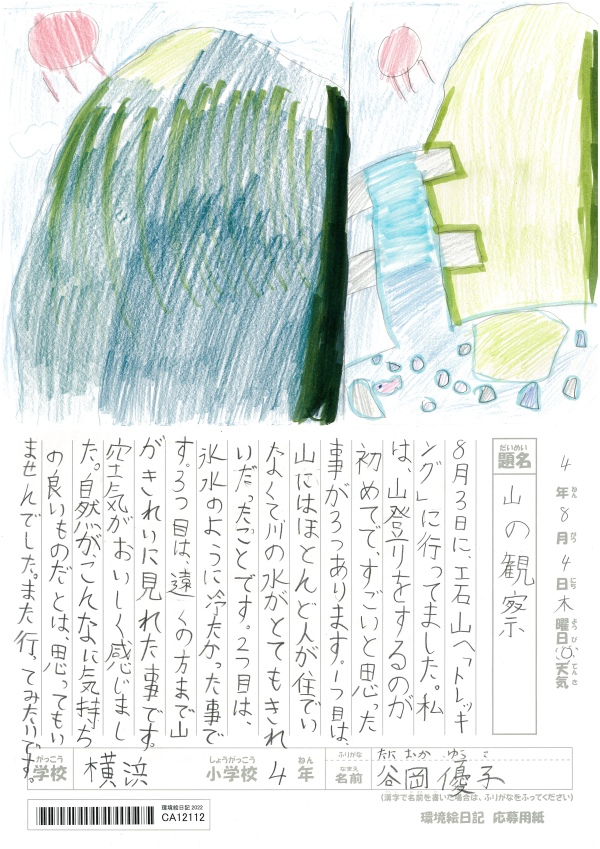 4年8月4日木曜日 天気
ねん がつ にち ようび てんき
だいめい
題名
山の観察
8月3日に、工石山へ「トレッキ
ング」に行ってました。私
は、山登りをするのが
初めてで、すごいと思った
事が3つあります。1つ目は、
山にはほとんど人が住でい
なくて川の水がとてもきれ
いだったことです。2つ目は、
氷水のように冷たかった事で
す。3つ目は、遠くの方まで山
がきれいに見れた事です。
空気がおいしく感じまし
た。自然がこんなに気持ち
の良いものだとは、思ってもい
ませんでした。また行ってみたいです。
がっこう
学校
横浜
しょうがっこう
小学校
4
ねん
年
ふりがな
たに おか ゆう こ
なまえ
名前
谷岡優子
(漢字で名前を書いた場合は、ふりがなをふってください)
環境絵日記 2022
CA12112
環境絵日記 応募用紙